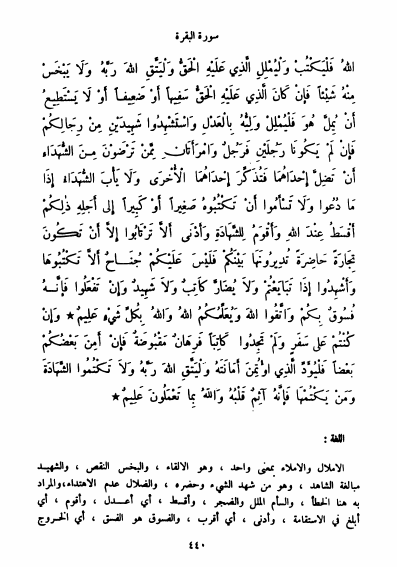 سورة البقرة
اللهُ فَلْيَكْتُبْ وَلْيُمْلِلِ الَّذِي عَلَيْهِ الْحَقُّ وَلْيَتَّقِ اللهَ رَبَّهُ وَلَا يَبْخَسْ
مِنْهُ شَيْئاً فَإِنْ كَانَ الَّذِي عَلَيْهِ الْحَقُّ سَفِيهاً أَوْ ضَعِيفاً أَوْ لَا يَسْتَطِيعُ
أَنْ يُمِلَّ هُوَ فَلْيُمْلِلْ وَلِيُّهُ بِالْعَدْلِ وَاسْتَشْهِدُوا شَهِيدَيْنِ مِنْ رِجَالِكُمْ
فَإِنْ لَمْ يَكُونَا رَجُلَيْنِ فَرَجُلٌ وَامْرَأَتَانِ مِمَّنْ تَرْضَوْنَ مِنَ الشُّهَدَاءِ
أَنْ تَضِلَّ إِحْدَاهُمَا فَتُذَكِّرَ إِحْدَاهُمَا الْأُخْرَى وَلَا يَأْبَ الشُّهَدَاءُ إِذَا
مَا دُعُوا وَلَا تَسْأَمُوا أَنْ تَكْتُبُوهُ صَغِيراً أَوْ كَبِيراً إِلَى أَجَلِهِ ذَلِكُمْ
أَقْسَطُ عِنْدَ اللهِ وَأَقْوَمُ لِلشَّهَادَةِ وَأَدْنَى أَلَّا تَرْتَابُوا إِلَّا أَنْ تَكُونَ
تِجَارَةً حَاضِرَةً تُدِيرُونَهَا بَيْنَكُمْ فَلَيْسَ عَلَيْكُمْ جُنَاحٌ أَلَّا تَكْتُبُوهَا
وَأَشْهِدُوا إِذَا تَبَايَعْتُمْ وَلَا يُضَارَّ كَاتِبٌ وَلَا شَهِيدٌ وَإِنْ تَفْعَلُوا فَإِنَّهُ
فُسُوقٌ بِكُمْ وَاتَّقُوا اللهَ وَيُعَلِّمُكُمُ اللهُ وَاللهُ بِكُلِّ شَيْءٍ عَلِيمٌ ★ وَإِنْ
كُنْتُمْ عَلَى سَفَرٍ وَلَمْ تَجِدُوا كَاتِباً فَرِهَانٌ مَقْبُوضَةٌ فَإِنْ أَمِنَ بَعْضُكُمْ
بَعْضاً فَلْيُؤَدِّ الَّذِي اؤْتُمِنَ أَمَانَتَهُ وَلْيَتَّقِ اللهَ رَبَّهُ وَلَا تَكْتُمُوا الشَّهَادَةَ
وَمَنْ يَكْتُمْهَا فَإِنَّهُ آثِمٌ قَلْبُهُ وَاللهُ بِمَا تَعْمَلُونَ عَلِيمٌ ★
اللغة :
الاملال والاملاء بمعنى واحد ، وهو الالقاء ، والبخس النقص ، والشهيد
مبالغة الشاهد ، وهو من شهد الشيء وحضره ، والضلال عدم الاهتداء،والمراد
به هنا الخطأ ، والسأم الملل والضجر ، وأقسط ، أي أعـدل ، وأقوم ، أي
أبلغ في الاستقامة ، وأدنى ، أي أقرب ، والفسوق هو الفسق ، أي الخروج
٤٤٠